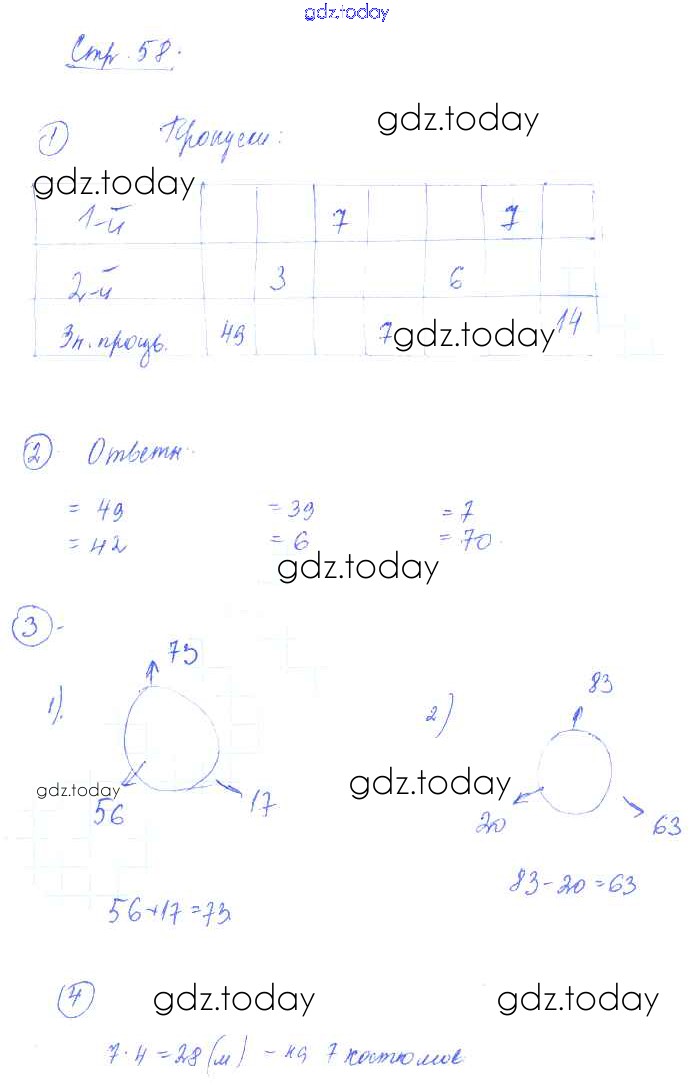 gdz.today
Стр. 58.
gdz.today
1 Пропуски:
gdz.today
1-й 7 7
2-й 3 6
Зн. произв. 49 7 14
gdz.today
2 Ответы:
= 49 = 39 = 7
= 42 = 6 = 70.
gdz.today
3 -
73
83
1).
2)
gdz.today
gdz.today
56 17
20 63
83 - 20 = 63
56 + 17 = 73
4
gdz.today
gdz.today
7 · 4 = 28 (м) - на 7 костюмов